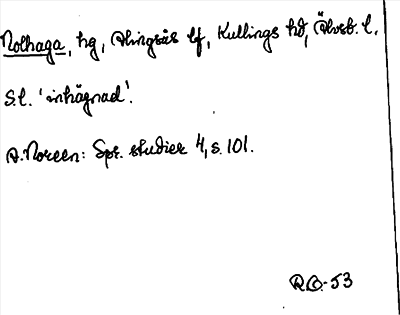 Nolhaga, hg, Alingsås lf, Kullings hd, Älvsb. l.
S.l. 'inhägnad'.
A. Noreen: Spr. studier 4, s. 101.
53